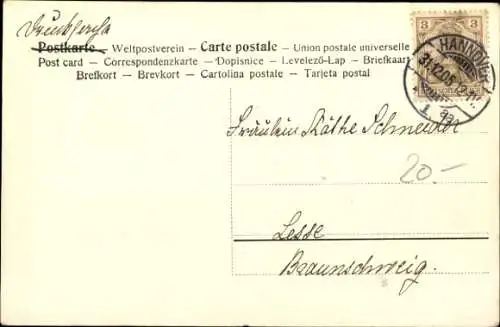 Drucksache
Postkarte - Weltpostverein - Carte postale - Union postale universelle
Post card - Correspondenzkarte - Dopisnice - Levelező-Lap - Briefkaart
Brefkort - Brevkort - Cartolina postale - Tarjeta postal
3 3
HANNOVER
31.12.05
1. 9a.
Fräulein Käthe Schneider
20.-
Lesse
Braunschweig.